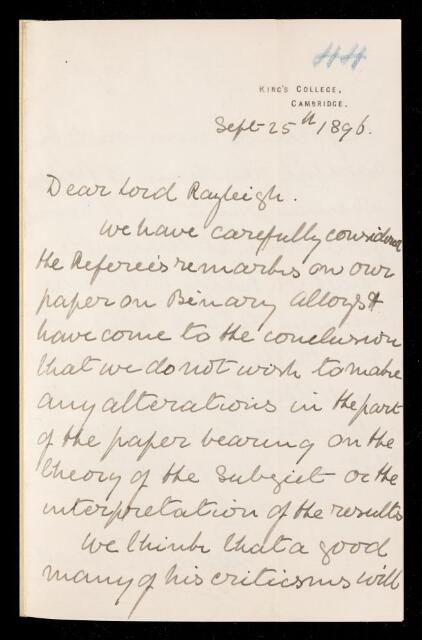 KING'S COLLEGE,
CAMBRIDGE.
Sept 25th 1896.
Dear Lord Rayleigh.
We have carefully considered
the Referee's remarks on our
paper on Binary Alloys &
have come to the conclusion
that we do not wish to make
any alterations in the part
of the paper bearing on the
theory of the subject or the
interpretation of the results
We think that a good
many of his criticisms will